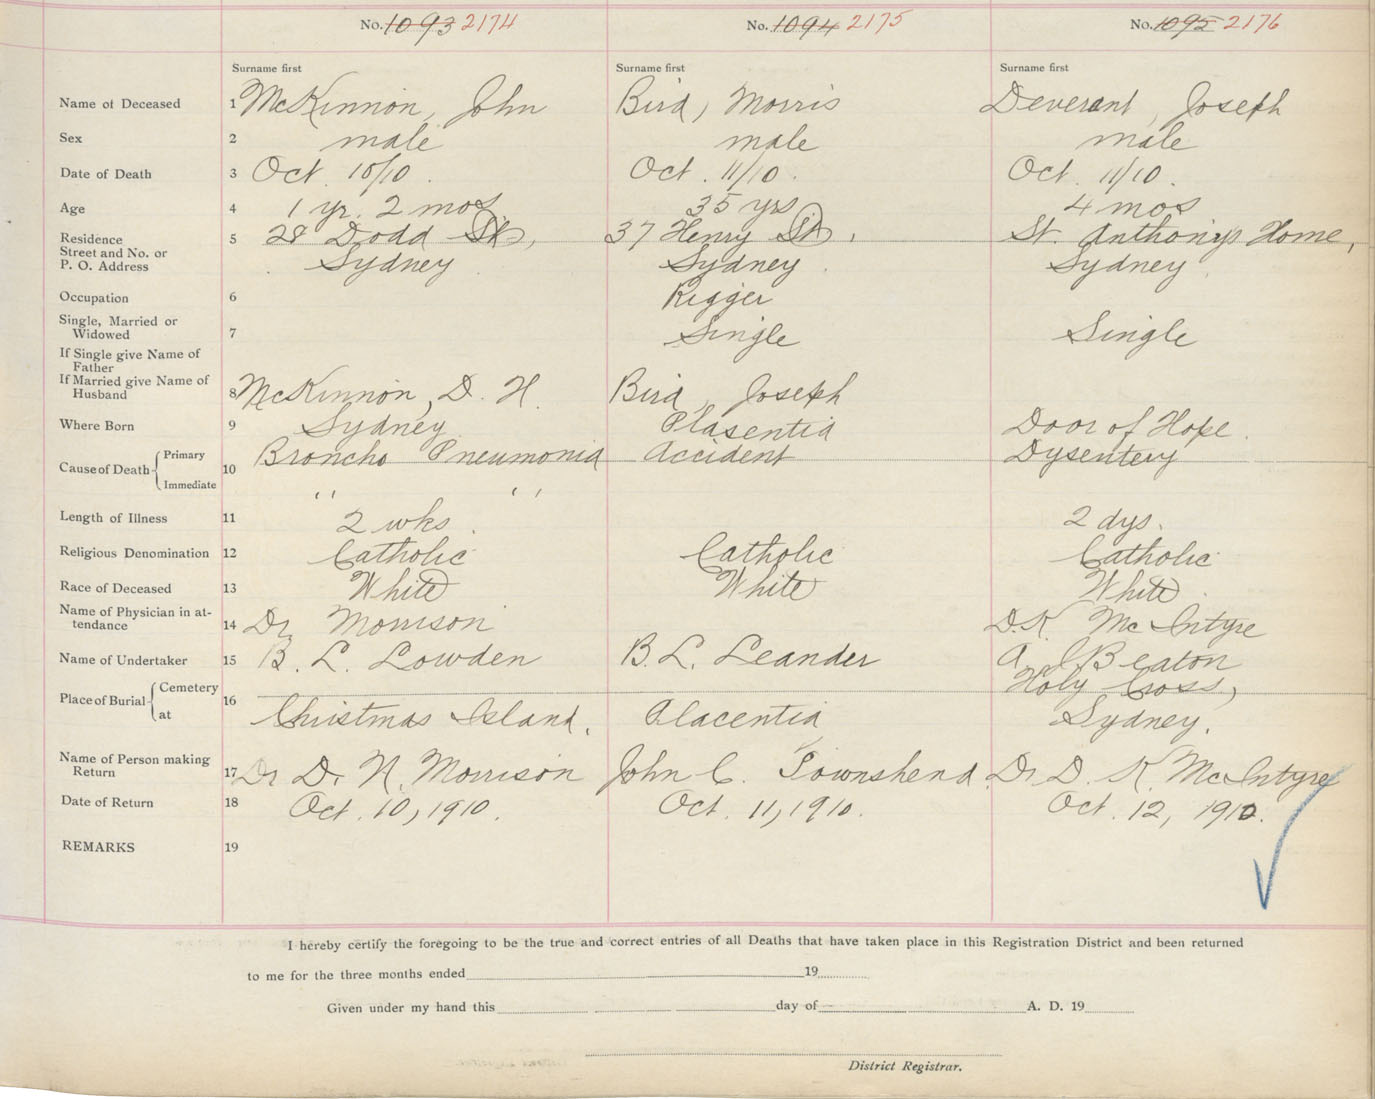 No. 1093 2174 No. 1094 2175 No. 1095 2176
Surname first Surname first Surname first
Name of Deceased 1 McKinnon, John Bird, Morris Deverant, Joseph
Sex 2 male male male
Date of Death 3 Oct. 10/10. Oct. 11/10. Oct. 11/10.
Age 4 1 yr. 2 mos 35 yrs 4 mos
Residence 5 28 Dodd St, 37 Henry St, St. Anthony's Home,
Street and No. or
P. O. Address Sydney Sydney Sydney
Occupation 6 Rigger
Single, Married or
Widowed 7 Single Single
If Single give Name of
Father
If Married give Name of
Husband 8 McKinnon, D. H. Bird, Joseph
Where Born 9 Sydney Plasentia Door of Hope.
Cause of Death Primary 10 Broncho Pneumonia Accident Dysentery
Immediate " "
Length of Illness 11 2 wks. 2 dys.
Religious Denomination 12 Catholic Catholic Catholic
Race of Deceased 13 White White White
Name of Physician in at-
tendance 14 Dr. Morrison D. K. McIntyre
Name of Undertaker 15 B. L. Lowden B. L. Leander A. J. Beaton
Place of Burial Cemetery 16 Holy Cross,
at Christmas Island. Placentia Sydney.
Name of Person making
Return 17 Dr. D. N. Morrison John C. Townshend. Dr. D. K. McIntyre
Date of Return 18 Oct. 10, 1910. Oct. 11, 1910. Oct. 12, 1910.
REMARKS 19
I hereby certify the foregoing to be the true and correct entries of all Deaths that have taken place in this Registration District and been returned
to me for the three months ended 19
Given under my hand this day of A. D. 19
District Registrar.